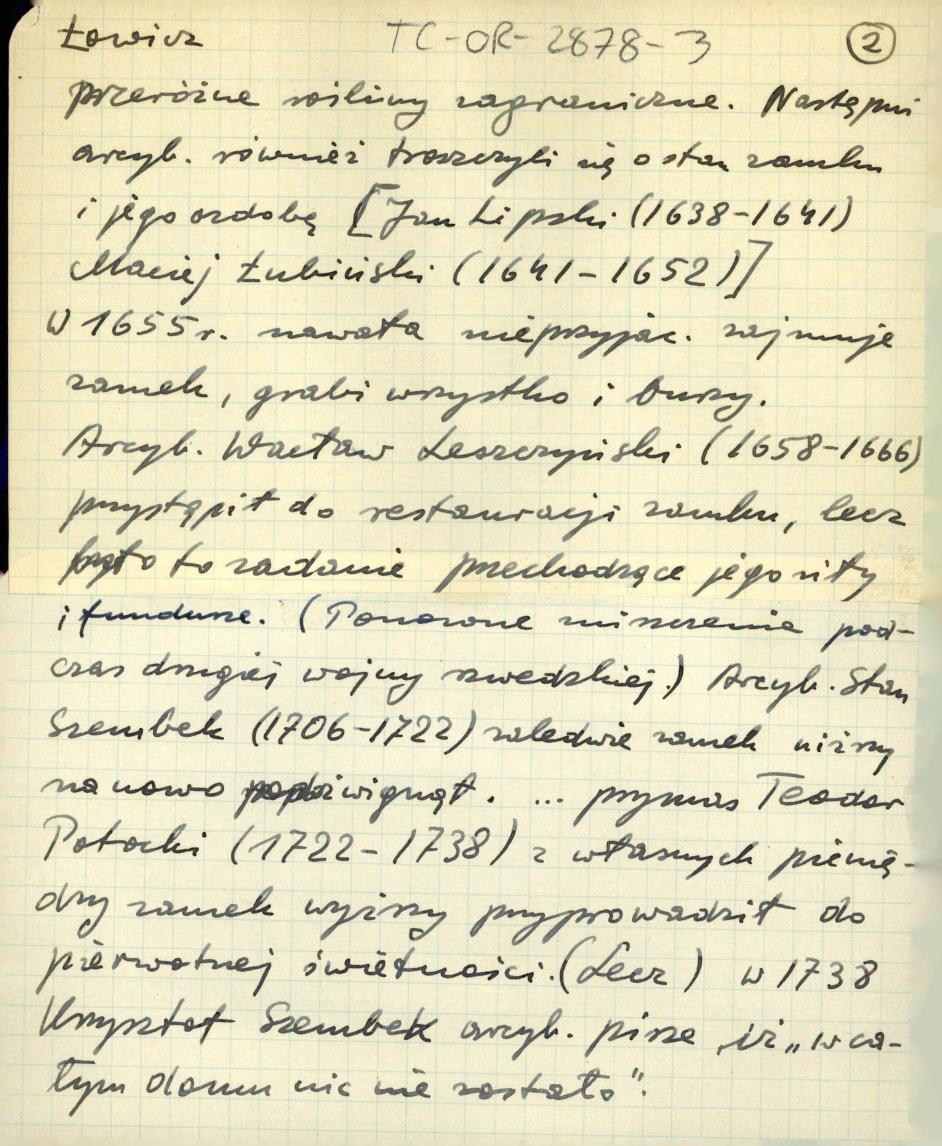 Łowicz TC-OR-2878-3 2
przeróżne rośliny zagraniczne. Następni
arcyb. również troszczyli się o stan zamku
i jego ozdobę [Jan Lipski (1638-1641)
Maciej Łubieński (1641-1652)]
W 1655 r. nawała nieprzyjac. zajmuje
zamek, grabi wszystko i burzy.
Arcyb. Wacław Leszczyński (1658-1666)
przystąpił do restauracji zamku, lecz
było to zadanie przechodzące jego siły
i fundusze. (Ponowne niszczenie pod-
czas drugiej wojny szwedzkiej.) Arcyb. Stan
Szembek (1706-1722) zaledwie zamek niższy
na nowo podźwignął. ... prymas Teodor
Potocki (1722-1738) z własnych pienię-
dzy zamek wyższy przyprowadził do
pierwotnej świetności. (Lecz) w 1738
Krzysztof Szembek arcyb. pisze, iż „w ca-
łym domu nic nie zostało".